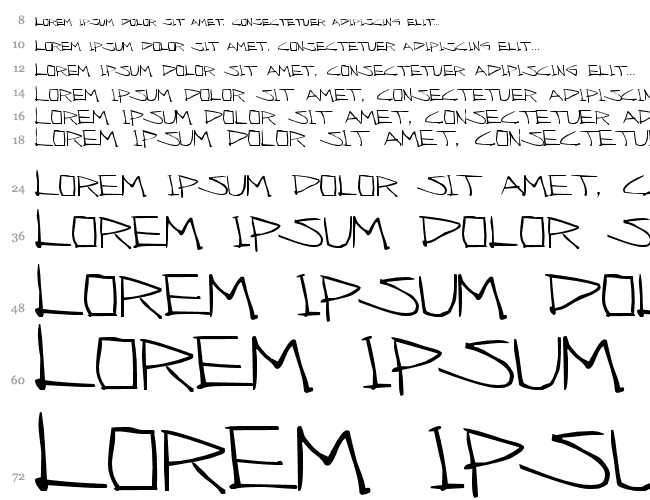 8 LOREM IPSUM DOLOR SIT AMET, CONSECTETUER ADIPISCING ELIT...
10 LOREM IPSUM DOLOR SIT AMET, CONSECTETUER ADIPISCING ELIT...
12 LOREM IPSUM DOLOR SIT AMET, CONSECTETUER ADIPISCING ELIT...
14 LOREM IPSUM DOLOR SIT AMET, CONSECTETUER ADIPISCIN
16 LOREM IPSUM DOLOR SIT AMET, CONSECTETUER AD
18 LOREM IPSUM DOLOR SIT AMET, CONSECTETU
24 LOREM IPSUM DOLOR SIT AMET, C
36 LOREM IPSUM DOLOR S
48 LOREM IPSUM DOL
60 LOREM IPSUM
72 LOREM IPSU